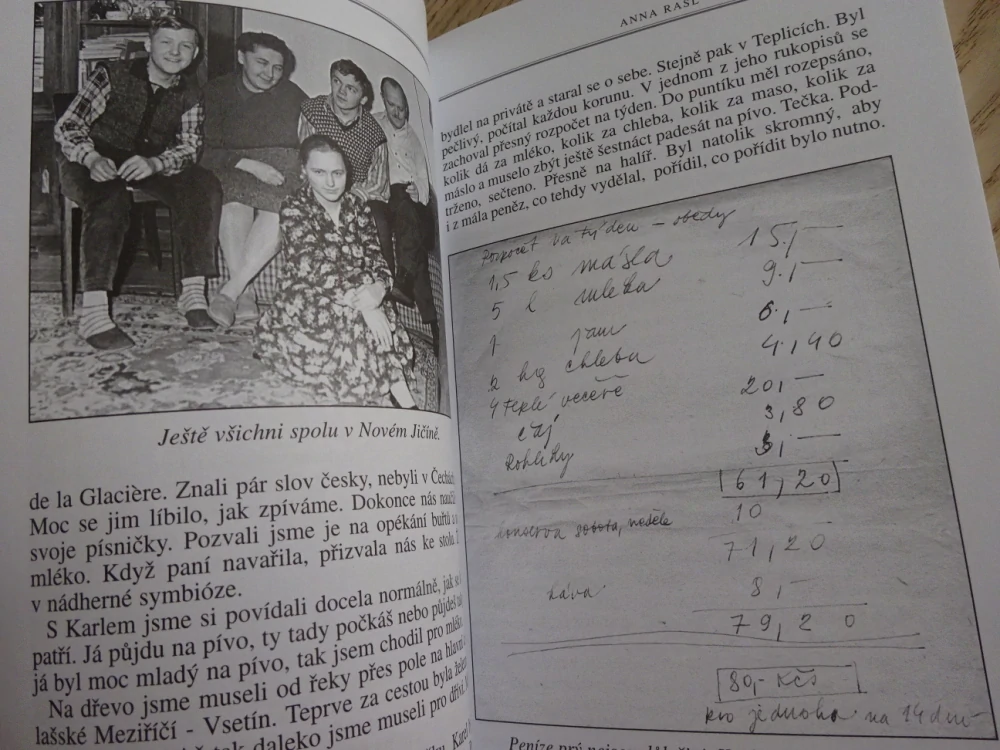 Ještě všichni spolu v Novém Jičíně.
de la Glacière. Znali pár slov česky, nebyli v
Moc se jim líbilo, jak zpíváme. Dokonce nás
svoje písničky. Pozvali jsme je na opékání buřtů a
mléko. Když paní navařila, přizvala nás ke stolu.
v nádherné symbióze.
S Karlem jsme si povídali docela normálně, jak se
patří. Já půjdu na pívo, ty tady počkáš nebo půjdeš
já byl moc mladý na pívo, tak jsem chodil pro mléko
Na dřevo jsme museli od řeky přes pole na hlavní
lašské Meziříčí - Vsetín. Teprve za cestou byla
tak daleko jsme museli pro dříví.
Karel
ANNA
bydlel na privátě a staral se o sebe. Stejně pak v Teplicích. Byl
pečlivý, počítal každou korunu. V jednom z jeho rukopisů se
zachoval přesný rozpočet na týden. Do puntíku měl rozepsáno,
kolik dá za mléko, kolik za chleba, kolik za maso, kolik za
máslo a muselo zbýt ještě šestnáct padesát na pívo. Tečka. Pod-
trženo, sečteno. Přesně na halíř. Byl natolik skromný, aby
i z mála peněz, co tehdy vydělal, pořídil, co pořídit bylo nutno.
Rozpočet na týden – obědy
1,5 másla 15,–
5 l mleka 9,–
1 jam 6,–
2 kg chleba 4,40
4 teplé večeře 20,–
čaj 3,80
Rohlíky 3,–
61,20
konserva sobota, neděle 10
71,20
káva 8,–
79,20
80,- Kčs
pro jednoho na 14 dní
Peníze